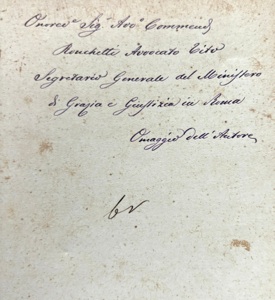 Onorev.e Sig.r Avv.o Commend.
Ronchetti Avvocato Tito
Segretario Generale del Ministero
di Grazia e Giustizia in Roma
Omaggio dell'Autore